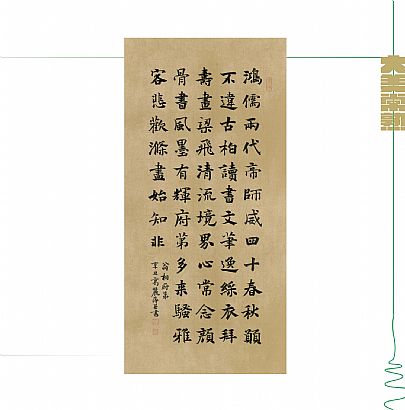 鴻儒兩代帝師威四十春秋願
不違古柏讀書文華逸綵衣拜
壽畫梁飛清流境界心常念顏
骨書風墨有輝府第多来騷雅
客悲歡滌盡始知非
翁相府第
辛丑
書
大美常熟